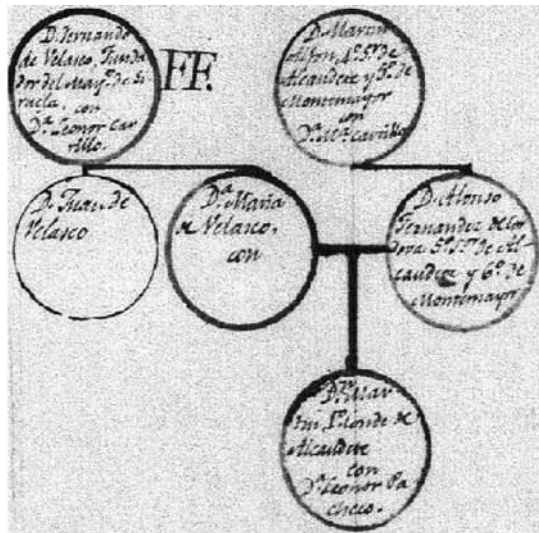 D. Fernando
de Velasco, Funda
dor del May.º de Si
ruela, con
D.ª Leonor Car
rillo.
FF.
D. Martin
Alfon, 4.º S.r de
Alcaudete y 5.º de
Montemayor
con
D.ª M.ª Carrillo
D. Juan de
Velasco
D.ª Maria
de Velasco,
con
D. Alonso
Fernandez de Cor
dova 5.º S.or de Al
caudete y 6.º de
Montemayor
D.n Mar
tin 1.º Conde de
Alcaudete
con
D.ª Leonor Pa
checo.